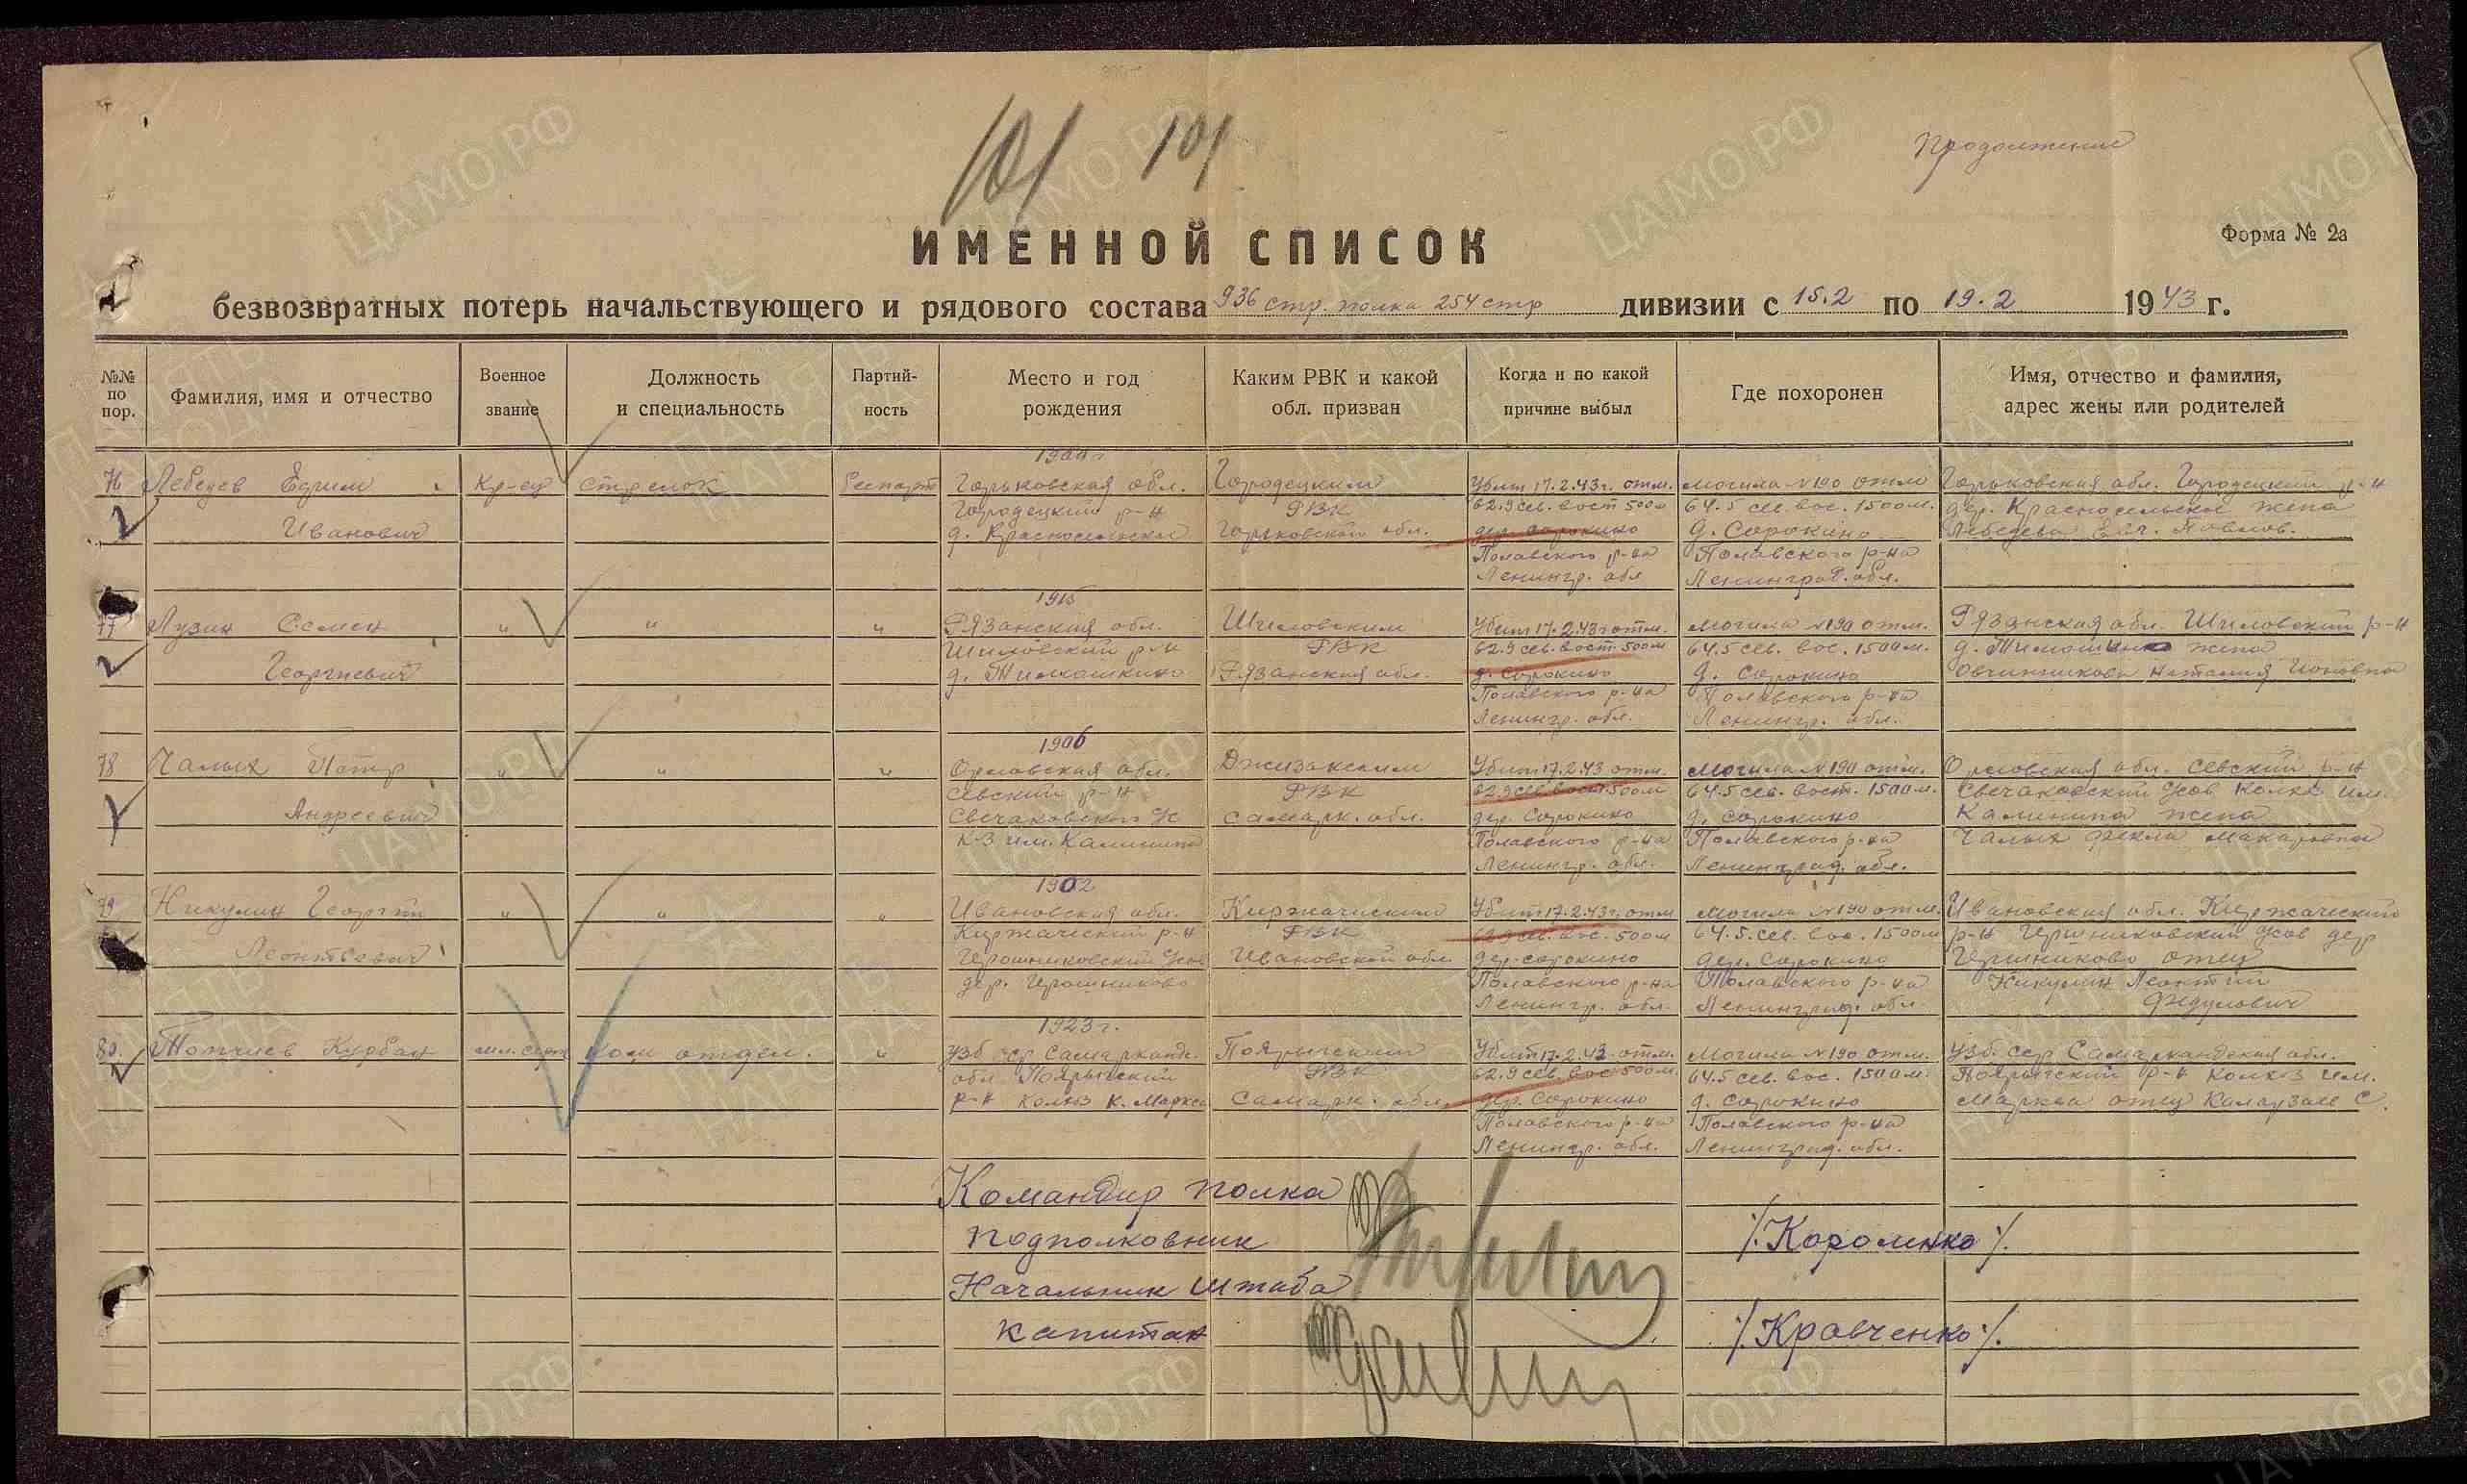 101 101
Продолжение
ИМЕННОЙ СПИСОК
Форма № 2а
безвозвратных потерь начальствующего и рядового состава 936 стр. полка 254 стр дивизии с 15.2 по 19.2 1943 г.
№№ по пор.
Фамилия, имя и отчество
Военное звание
Должность и специальность
Партийность
Место и год рождения
Каким РВК и какой обл. призван
Когда и по какой причине выбыл
Где похоронен
Имя, отчество и фамилия, адрес жены или родителей
76
Лебедев Ефим
Иванович
Кр-ец
стрелок
Беспарт
Горьковская обл.
Городецкий р-н
д. Красносельское
Городецким
РВК
Горьковской обл.
Убит 17.2.43г. отм.
62.9 сев. вост 500м
дер. Сорокино
Полавского р-на
Ленингр. обл
могила №190 отм
64.5 сев. вос. 1500м.
д. Сорокино
Полавского р-на
Ленинград. обл.
Горьковская обл. Городецкий р-н
дер. Красносельское жена
Лебедева
77
Лузин Семен
Георгиевич
"
"
"
1915
Рязанская обл.
Шиловский р-н
д. Тимошкино
Шиловским
РВК
Рязанская обл.
Убит 17.2.43г отм.
62.9 сев. вост. 500м
д. Сорокино
Полавского р-на
Ленингр. обл.
могила №190 отм.
64.5 сев. вос. 1500м.
д. Сорокино
Полавского р-на
Ленингр. обл.
Рязанская обл. Шиловский р-н
жена
Овчинникова Наталия Ионовна
78
Чалых Петр
Андреевич
"
"
"
1906
Орловская обл.
Севский р-н
К-З им. Калинина
Джизакским
РВК
Самарк. обл.
Убит 17.2.43 отм.
62.9 сев. вост. 500м
дер. Сорокино
Полавского р-на
Ленингр. обл.
Могила №190 отм.
64.5 сев. вост. 1500м.
д. Сорокино
Полавского р-на
Ленинград. обл.
Орловская обл. Севский р-н
Калинина жена
Чалых Фекла Макаровна
79
Никулин Георгий
Леонтьевич
"
"
"
1902
Ивановская обл.
Киржачский р-н
Киржачским
РВК
Ивановской обл.
Убит 17.2.43г. отм
62.9 сев. вос. 500м
дер. Сорокино
Полавского р-на
Ленингр. обл.
могила №190 отм.
64.5. сев. вос. 1500м
дер. Сорокино
Полавского р-на
Ленинград. обл
Ивановская обл. Киржачский
отец
Никулин Леонтий
80.
Топчиев Курбан
мл. серж
ком отдел.
"
1923 г.
Узб ССР Самарканд.
обл
р-н колхоз К. Маркса
РВК
Самарк. обл.
Убит 17.2.43 отм.
62.9 сев. вос 500м.
дер. Сорокино
Полавского р-на
Ленингр. обл.
Могила №190 отм.
64.5 сев. вос. 1500м.
д. Сорокино
Полавского р-на
Ленинград. обл.
Узб. ССР Самаркандская обл.
р-н колхоз им.
Маркса отец
Командир полка
Подполковник /. Короленко /.
Начальник штаба
Капитан /. Кравченко /.